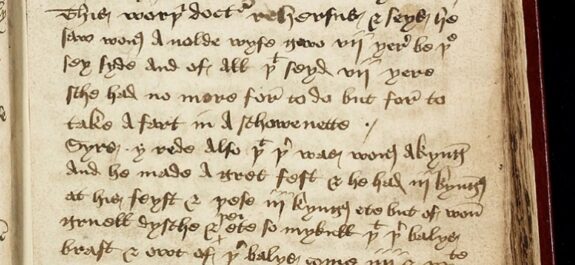 This worþ doctur rehersus & seys he
saw wons A nolde wyfe gwo vii yer be þe
sey syde and of all þt seyd vii yere
sche had no more for to do but for to
take a fart in a schowenette ./
Syrs y rede also þt þr was wons A kyng
And he made A gret fest & he had iii kyngus
at his feyst & þese iii kyngus ete but of won
gruell dysche & þei ete so mykull þt þr balys
brast & owt of þr balys come iiii &